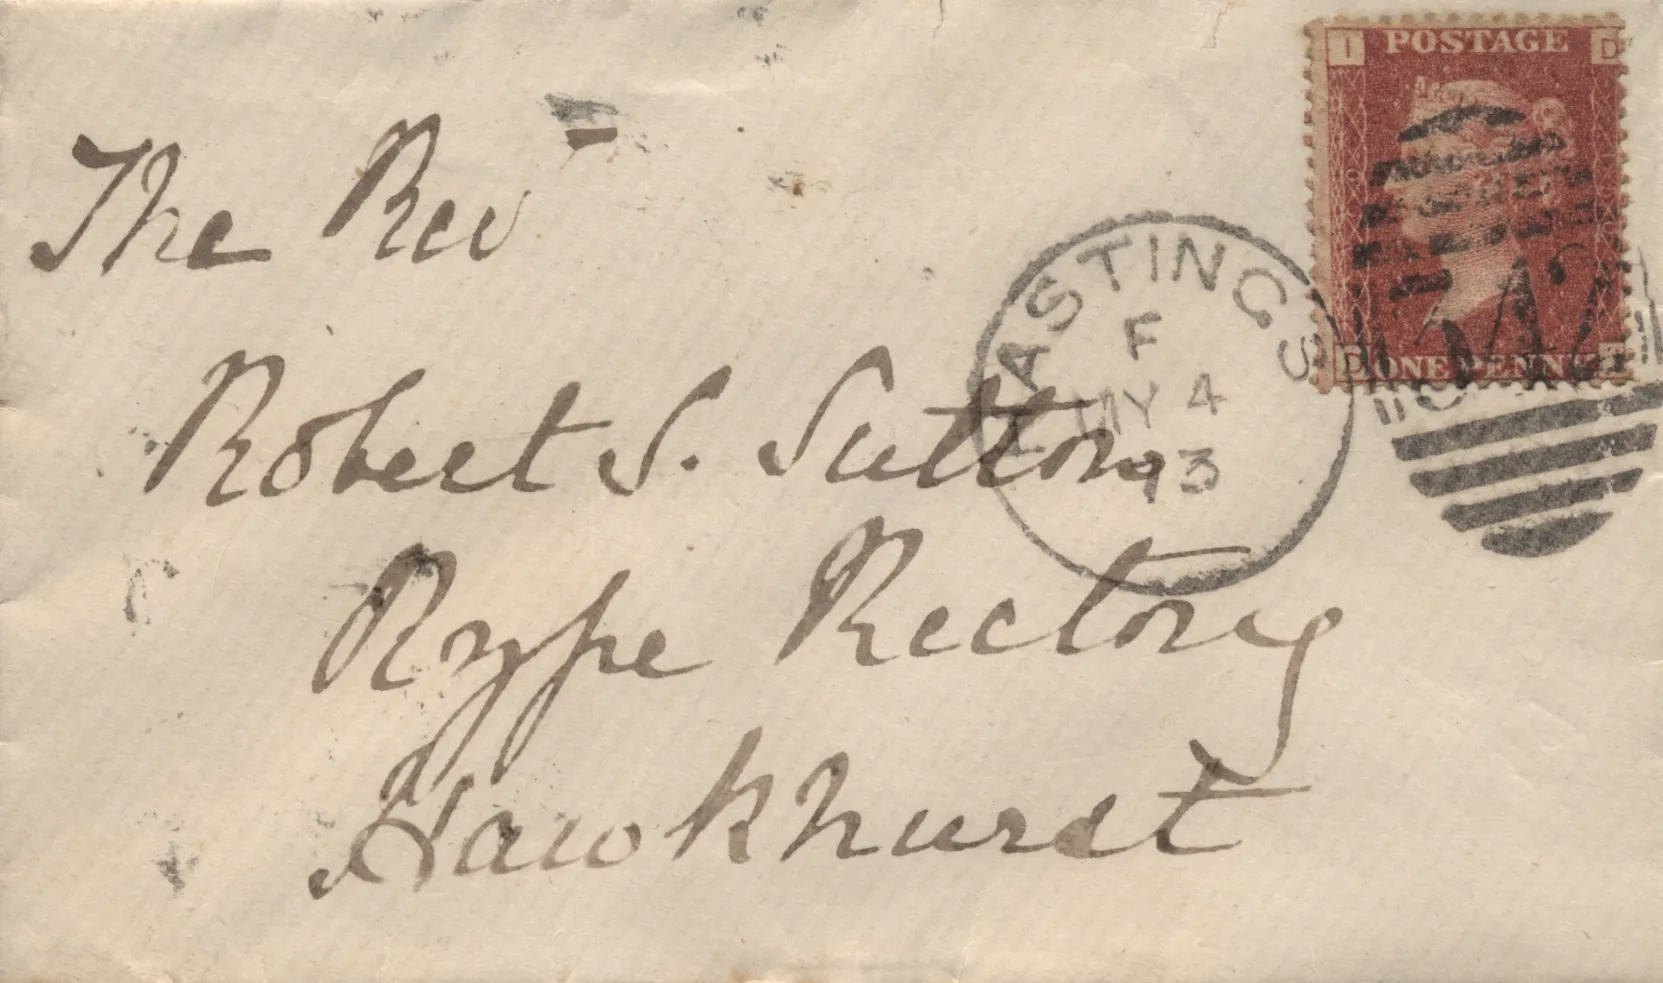 I POSTAGE D
The Rev
HASTINGS
F
MY 4
73
D ONE PENNY I
Robert S. Sutton
Rype Rectory
Hawkhurst